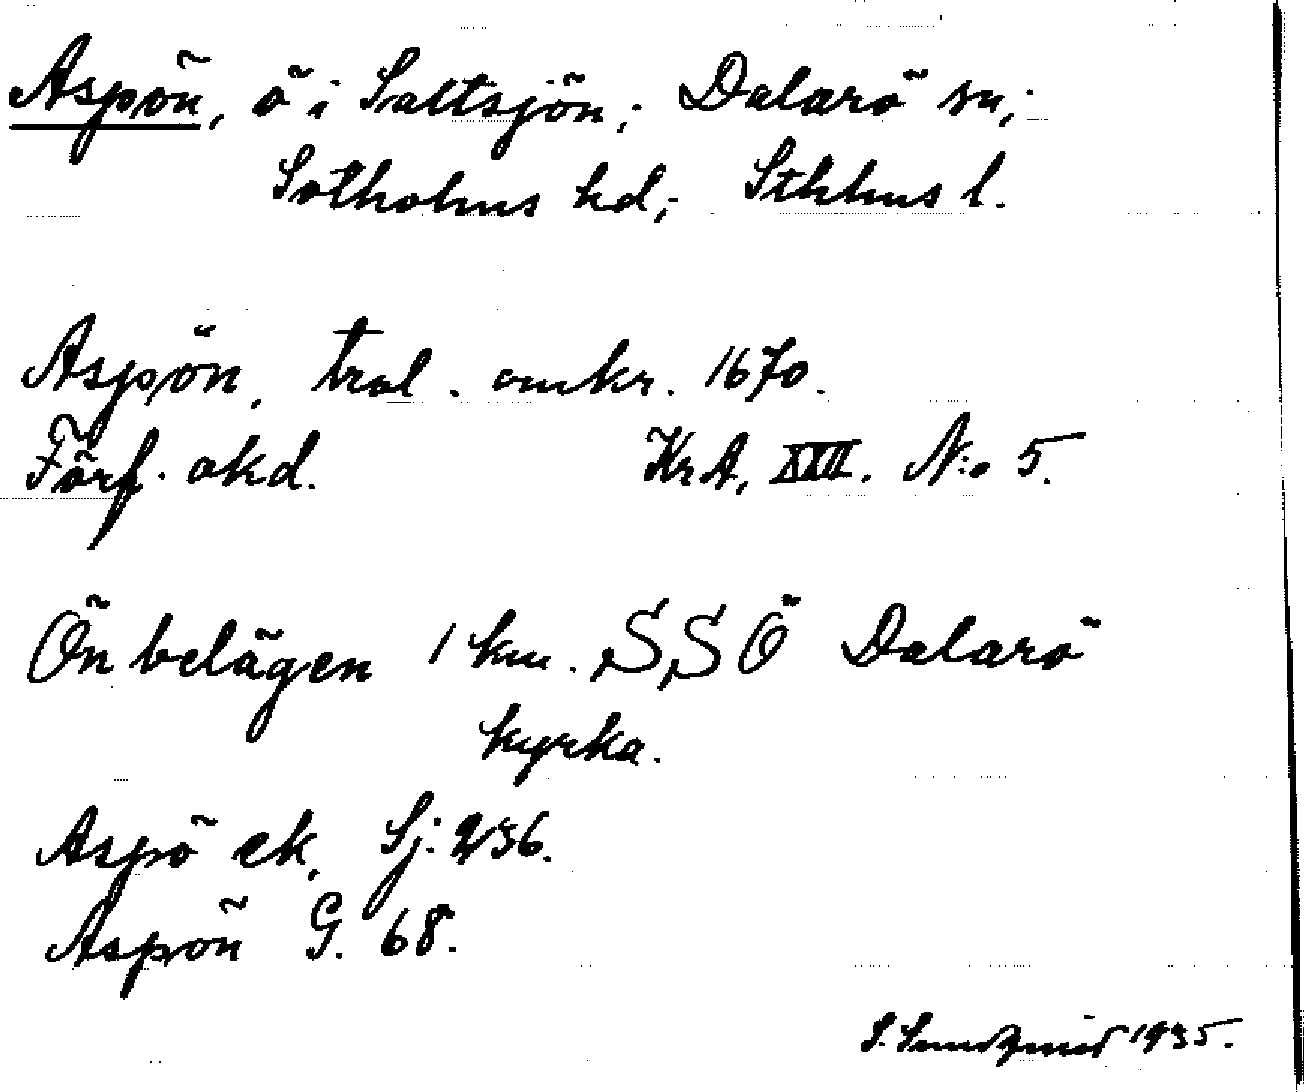 Aspön, ö i Saltsjön; Dalarö sn;
Sotholms hd; Sthlms l.
Aspön, trol. omkr. 1670.
Förf. okd. KrA, XIII. N:o 5.
Ön belägen 1 km. SSÖ Dalarö
kyrka.
Aspö ek. Sj: 236.
Aspön G. 68.
S. 1935.